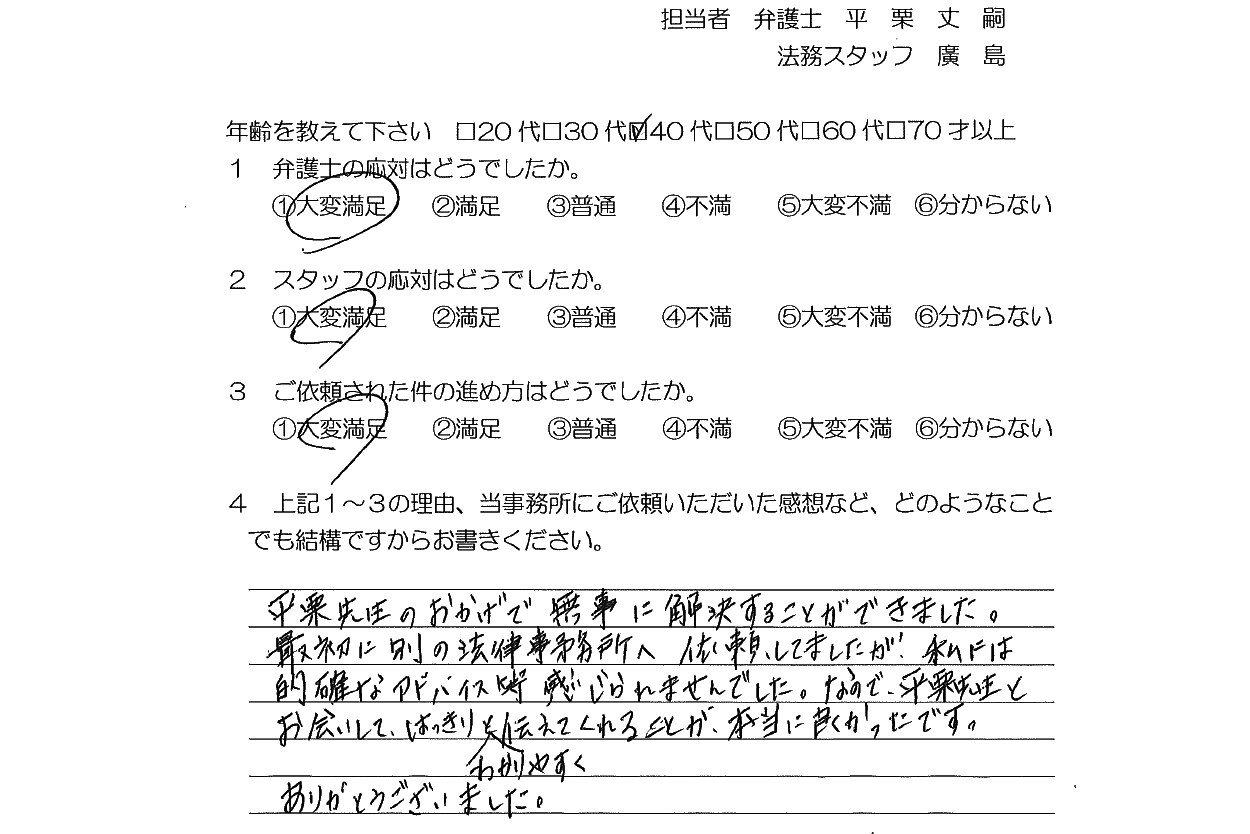 担当者　弁護士　平　栗　丈　嗣
法務スタッフ　廣　島
年齢を教えて下さい　□20代□30代☑40代□50代□60代□70才以上
１　弁護士の応対はどうでしたか。
①大変満足　②満足　③普通　④不満　⑤大変不満　⑥分からない
２　スタッフの応対はどうでしたか。
①大変満足　②満足　③普通　④不満　⑤大変不満　⑥分からない
３　ご依頼された件の進め方はどうでしたか。
①大変満足　②満足　③普通　④不満　⑤大変不満　⑥分からない
４　上記１～３の理由、当事務所にご依頼いただいた感想など、どのようなこと
でも結構ですからお書きください。
平栗先生のおかげで無事に解決することができました。
最初に別の法律事務所へ依頼してましたが、私には
的確なアドバイス等感じられませんでした。なので、平栗先生と
お会いして、はっきりと伝えてくれることが、本当に良かったです。
わかりやすく
ありがとうございました。